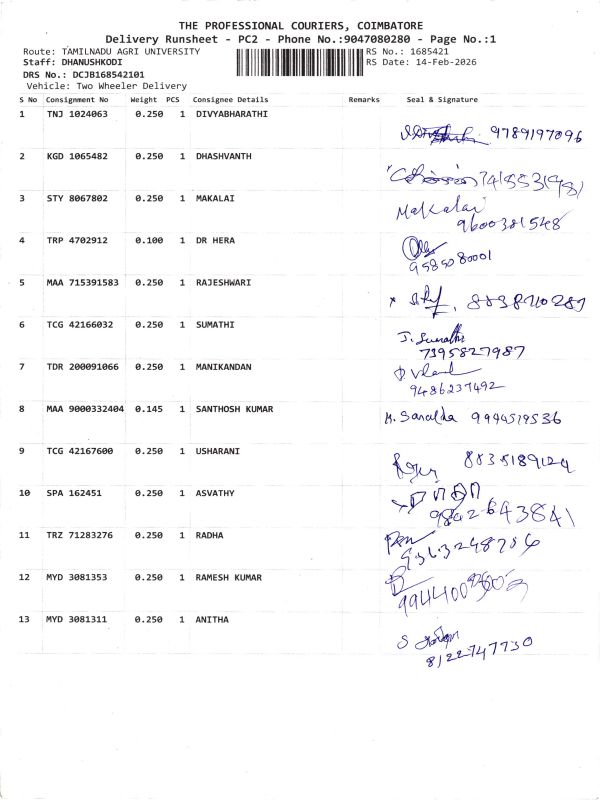 THE PROFESSIONAL COURIERS, COIMBATORE
Delivery Runsheet - PC2 - Phone No.:9047080280 - Page No.:1
Route: TAMILNADU AGRI UNIVERSITY RS No.: 1685421
Staff: DHANUSHKODI RS Date: 14-Feb-2026
DRS No.: DCJB168542101
Vehicle: Two Wheeler Delivery
S No Consignment No Weight PCS Consignee Details Remarks Seal & Signature
1 TNJ 1024063 0.250 1 DIVYABHARATHI
9789197096
2 KGD 1065482 0.250 1 DHASHVANTH
3 STY 8067802 0.250 1 MAKALAI
Makalai
9600381548
4 TRP 4702912 0.100 1 DR HERA
9585080001
5 MAA 715391583 0.250 1 RAJESHWARI
6 TCG 42166032 0.250 1 SUMATHI
J. Sumathi
7395827987
7 TDR 200091066 0.250 1 MANIKANDAN
9486237492
8 MAA 9000332404 0.145 1 SANTHOSH KUMAR
9 TCG 42167600 0.250 1 USHARANI
10 SPA 162451 0.250 1 ASVATHY
9842643841
11 TRZ 71283276 0.250 1 RADHA
12 MYD 3081353 0.250 1 RAMESH KUMAR
13 MYD 3081311 0.250 1 ANITHA
8122747730